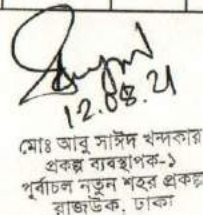 12.08.21
মোঃ আবু সাঈদ খন্দকার
প্রকল্প ব্যবস্থাপক-১
পূর্বাচল নতুন শহর প্রকল্প
রাজউক, ঢাকা